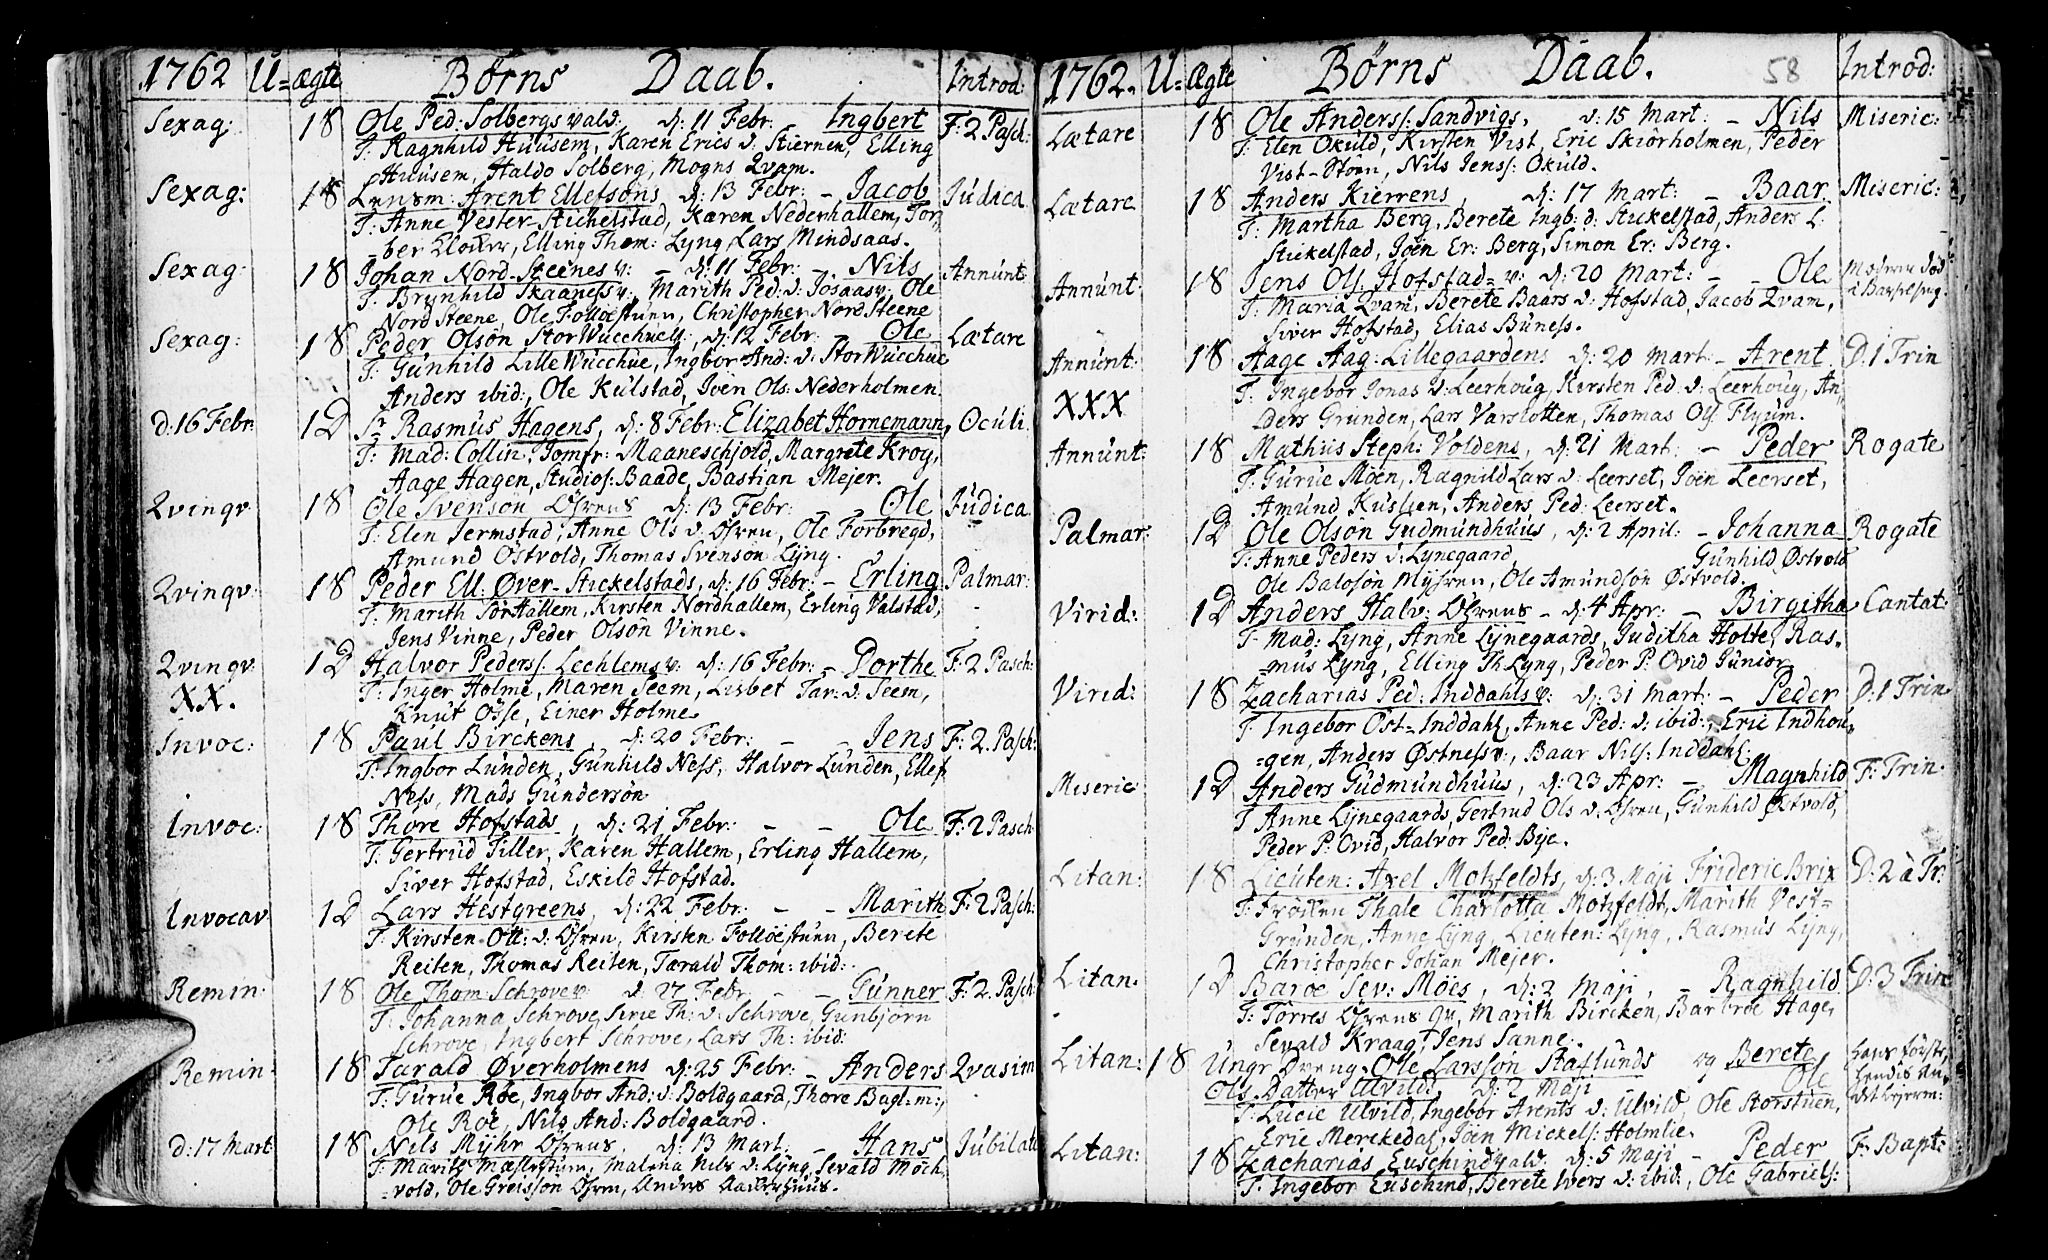 1762 U= ægte Børns Daab. Introd:
Sexag: 1 S Ole Ped: Solbergsvald. d: 11 Febr: Ingbert F: 2 Pasch:
T: Ragnhild Huusem, Karen Erics d: Stiernen, Elling
Huusem, Haldo Solberg, Mogns Qvam.
Sexag: 1 S Lensm: Arent Ellefsøns d: 13 Febr: – Jacob Judica
T: Anne Vester-Stichelstad, Karen Nederhallem, Tor-
ber Elden, Elling Thom: Lyng, Lars Mindsaas.
Sexag: 1 S Johan Nord-Steenes v: – d: 11 Febr: – Nils Annunt
T: Brynhild Skaaness v: Marith Ped: d: Josaas v: Ole
Nord Steene, Ole Folloestuen, Christopher Nord Steene
Sexag: 1 S Peder Olsøn Stor Wucchuell, d: 12 Febr: Ole Lætare
T: Gunhild Lille Wucchue, Ingbor And: d: Stor Wucchue
Anders ibid:, Ole Kulstad, Joen Ols: Nederholmen.
d: 16 Febr. 1 D Sr Rasmus Hagens, d: 8 Febr: Elizabet Hornemann, Oculi
T: Mad: Collin, Jomfr: Maaneschjold, Margrete Kroy,
Aage Hagen, Studios: Baade, Bastian Mejer.
Qvinqv: 1 S Ole Svensøn Ofrens d: 13 Febr: – Ole Judica
T: Elen Jermstad, Anne Ols d. Ofren, Ole Forbregd,
Amund Østvold, Thomas Svensøn Lyng.
Qvinqv: 1 S Peder Ell: Øver-Stickelstads, d: 16 Febr: – Erling Palmar:
T: Marith Torhallem, Kirsten Nordhallem, Erling Valstad,
Jens Vinne, Peder Olsøn Vinne.
Qvinqv 1 D Halvor Peders: Lechlems v: d: 16 Febr: – Dorthe F: 2 Pasch:
XX. T: Inger Holme, Maren Seem, Lisbet Tar: d: Seem,
Knut Osse, Einer Holme
Invoc: 1 S Paul Birckens, d: 20 Febr: – – Jens F: 2. Pasch:
T: Ingbor Lunden, Gunhild Ness, Halvor Lunden, Ellef
Ness, Mads Gundersøn
Invoc: 1 S Thore Hofstads, d: 21 Febr: – – Ole F: 2 Pasch
T: Gertrud Tiller, Karen Hallem, Erling Hallem,
Siver Hofstad, Eskild Hofstad.
Invocav 1 D Lars Hestgreens, d: 22 Febr: – – Marith F: 2 Pasch:
T: Kirsten Oll: d: Ofren, Kirsten Folloestuen, Berete
Reiten, Thomas Reiten, Tarald Thom: ibid:
Remin: 1 S Ole Thom: Schrove v: d: 27 Febr – – Gunner F: 2. Pasch:
T: Johanna Schrove, Sirie Th: d: Schrove, Gunbjorn
Schrove, Ingbert Schrove, Lars Th: ibid:
Remin: 1 S Tarald Øverholmens d: 25 Febr: – Anders Qvasim
T: Gurue Røe, Ingbor And: d: Boldgaard, Thore Bagl: m:,
Ole Røe, Nils And: Boldgaard.
d: 17 Mart 1 S Nils Myhr Ofrens, d: 13 Mart: – Hans Jubilate
T: Malena Nils d: Lyng, Sevald Moch-
vold, Ole Greisson Ofren,
1762. U= ægte Børns Daab. 58 Introd:
Lætare 1 S Ole Anders: Sandvigs, d: 15 Mart: – Nils Miseric:
T: Elen Okuld, Kirsten Vist, Eric Skiørholmen, Peder
Vist-Støen, Nils Jens: Okuld.
Lætare 1 S Anders Kierrens, d: 17 Mart: – Baar Miseric:
T: Martha Berg, Berete Ingb: d: Stickelstad, Anders L:
Stickelstad, Joen Er: Berg, Simon Er: Berg.
Annunt: 1 S Jens Ols: Hofstad= v: d: 20 Mart: – – Ole Moderen død i Barselseng.
T: Maria Qvam, Berete Baars d: Hofstad, Jacob Qvam,
Siver Hofstad, Elias Buness.
Annunt: 1 S Aage Aag: Lillegaardens d: 20 Mart: – Arent D: 1 Trin
XXX T: Ingebor Jonas d: Leerhoug, Kirsten Ped: d: Leerhoug, An-
ders Grunden, Lars Varslotten, Thomas Ols: Flyum.
Annunt: 1 S Mathus Steph: Voldens, d: 21 Mart: – Peder Rogate
T: Gurue Møen, Ragnild Lars d: Leerset, Joen Leerset,
Amund Kuslien, Anders Ped: Leerset.
Palmar: 1 D Ole Olsøn Gudmundhuus, d: 2 April: – Johanna Rogate
T: Anne Peders d: Lynegaard Gunhild Østvold
Ole Baldsøn Myhren, Ole Amundsøn Østvold.
Virid: 1 D Anders Halv: Ofrens – d: 4 Apr: – Birgitha Cantat:
T: Mad: Lyng, Anne Lynegaards, Juditha Holte, Ras-
=mus Lyng, Elling Th Lyng, Peder P: Ovid Junior
Virid: 1 S Zacharias Ped: Inddahls v: d: 31 Mart: – Peder D: 1 Trin
T: Ingebor Øst=Inddahl, Anne Ped: d: ibid:, Eric Indhou-
=gen, Anders Østness v:, Baar Nils: Inddahl
Miseric 1 D Anders Gudmundhuus, d: 23 Apr: – Magnhild F: Trin.
T: Anne Lynegaards, Gertrud Ols d: Ofren, Gunhild Østvold,
Peder P: Ovid, Halvor Ped: Bye.
Litan: 1 S Lieuten: Axel Motzfeldts, d: 3 Maji Frideric Brix D: 2 à Tr:
T: Frøiken Thale Charlotta Motzfeldt, Marith Vest=
Grunden, Anne Lyng, Lieuten: Lyng, Rasmus Lyng,
Christopher Johan Mejer.
Litan: 1 D Baroe Sev: Moes, d: 2 Maji, – Ragnhild D: 3 Trin
T: Torres Ofrens qv, Marith Bircken, Barbroe Hage,
Sevald Kraag, Jens Sanne.
Litan: 1 S Ungr Dreng Ole Larssøn Staflunds og Berete Hans første, hendis An- det Lejerm:
Ols Datter Ulvild: d: 2 Maji Ole
T: Lucie Ulvild, Ingebor Arents d: Ulvild, Ole Storstuen,
Eric Merckedal, Joen Mickels: Holmlie.
Litan: 1 S Zacharias Euschindvald, d: 5 Maji – Peder F: Bapt:
T: Ingebor Euschind, Berete Ivers d: ibid:, Ole Gabriels: